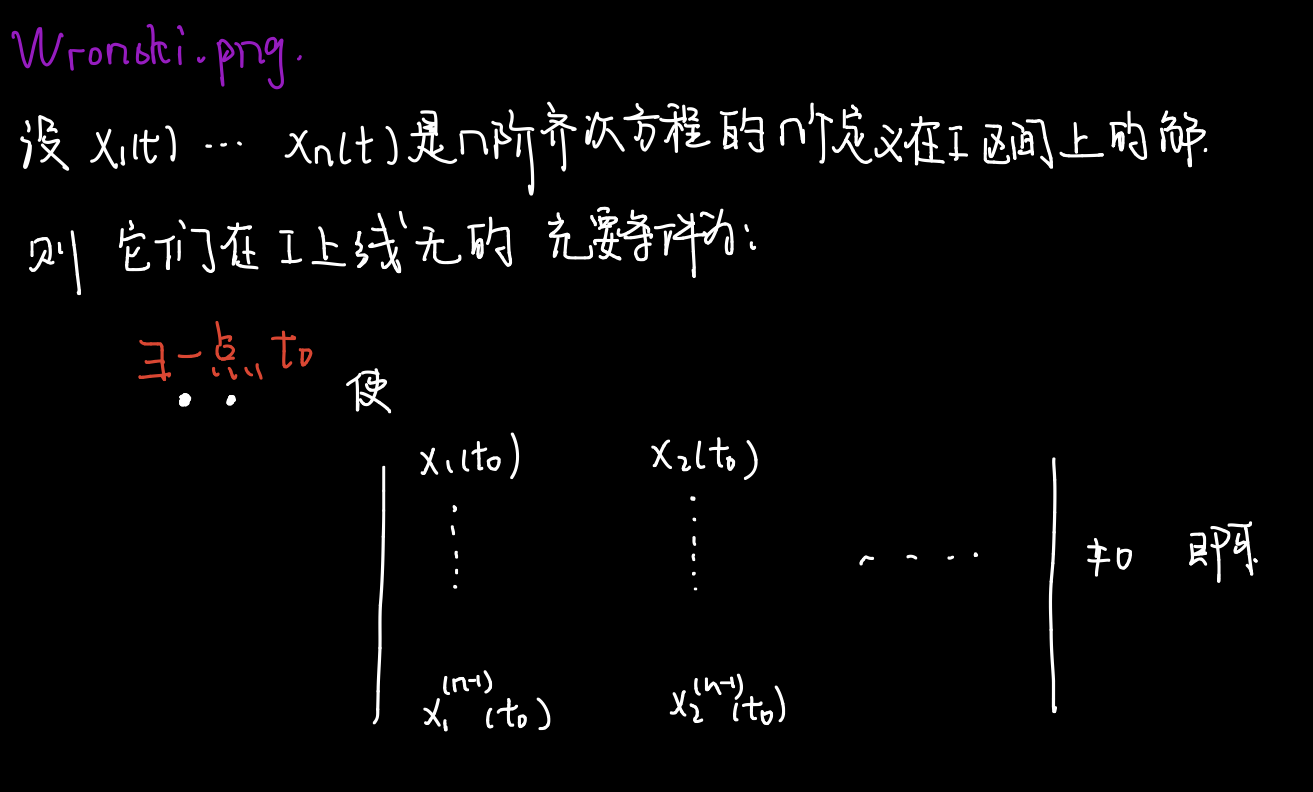 Wronski.png.
设 x₁(t) ⋯ xₙ(t) 是n阶齐次方程的n个定义在I区间上的解.
则 它们在I上线无的 充要条件为:
∃一点 t₀ 使
x₁(t₀) x₂(t₀)
⋯⋯ ≠0 即可.
x₁⁽ⁿ⁻¹⁾(t₀) x₂⁽ⁿ⁻¹⁾(t₀)